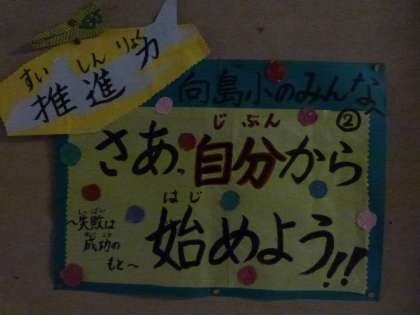 すいしんりょく
推進力
向島小のみんなへ
②
じぶん
さあ、自分から
はじ
始めよう!!
しっぱい
〜失敗は
せいこう
成功の
もと〜